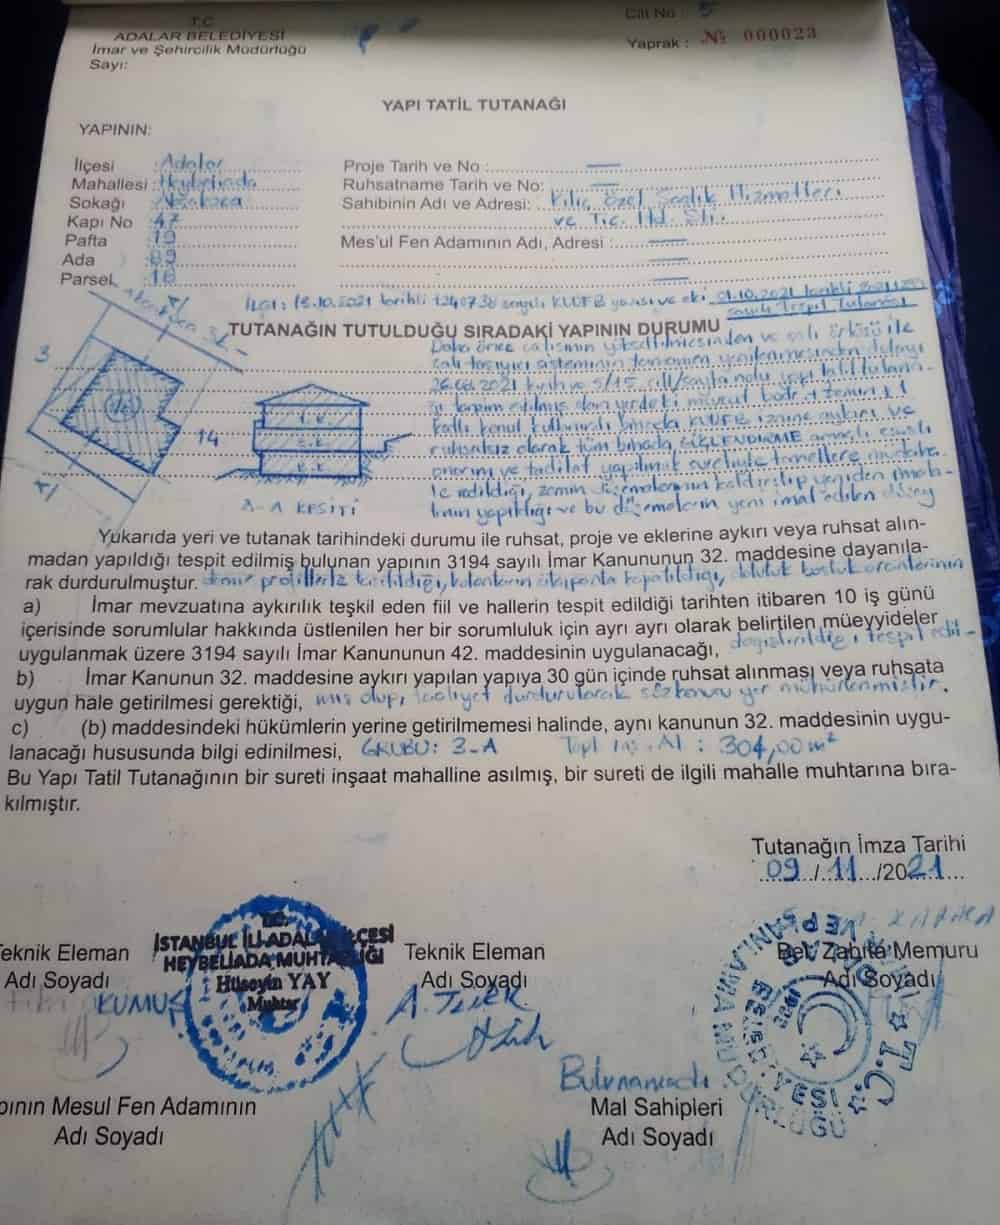 T.C
ADALAR BELEDİYESİ
İmar ve Şehircilik Müdürlüğü
Sayı:
Cilt No : 5
Yaprak : № 000023
YAPI TATİL TUTANAĞI
YAPININ:
İlçesi : Adalar
Mahallesi : Heybeliada
Sokağı
Kapı No : 47
Pafta : 19
Ada : 69
Parsel : 16
Proje Tarih ve No :
Ruhsatname Tarih ve No:
Sahibinin Adı ve Adresi: Kılıç Özel Sağlık Hizmetleri
ve Tic. Ltd. Şti.
Mes'ul Fen Adamının Adı, Adresi :
İLGİ: 18.10.2021 tarihli 1240738 sayılı KUDEB yazısı ve eki 01.10.2021 tarihli
sayılı Tespit Tutanağı
TUTANAĞIN TUTULDUĞU SIRADAKİ YAPININ DURUMU
Daha önce çatısının yükseltilmesinden ve çatı örtüsü ile
çatı taşıyıcı sisteminin tamamen yenilenmesinden dolayı
2021 tarih ve 5/15 cilt/sayfa nolu yapı tatil tutana-
ğı tanzim edilmiş olan yerdeki mevcut bodrum+zemin+1
katlı konut kullanımlı binada KUDEB iznine aykırı ve
ruhsatsız olarak tüm binada GÜÇLENDİRME amaçlı esaslı
onarım ve tadilat yapılmak suretiyle temellere müdaha-
le edildiği, zemin döşemelerinin kaldırılıp yeniden imala-
tının yapıldığı ve bu döşemelerin yeni imal edilen düşey
3
14
A-A KESİTİ
Yukarıda yeri ve tutanak tarihindeki durumu ile ruhsat, proje ve eklerine aykırı veya ruhsat alın-
madan yapıldığı tespit edilmiş bulunan yapının 3194 sayılı İmar Kanununun 32. maddesine dayanıla-
rak durdurulmuştur. demir profillerle tutturulduğu, kapatıldığı, doluluk boşluk oranlarının
a) İmar mevzuatına aykırılık teşkil eden fiil ve hallerin tespit edildiği tarihten itibaren 10 iş günü
içerisinde sorumlular hakkında üstlenilen her bir sorumluluk için ayrı ayrı olarak belirtilen müeyyideler
uygulanmak üzere 3194 sayılı İmar Kanununun 42. maddesinin uygulanacağı, değiştirildiği tespit edil-
b) İmar Kanunun 32. maddesine aykırı yapılan yapıya 30 gün içinde ruhsat alınması veya ruhsata
uygun hale getirilmesi gerektiği, miş olup, faaliyet durdurularak söz konusu yer mühürlenmiştir.
c) (b) maddesindeki hükümlerin yerine getirilmemesi halinde, aynı kanunun 32. maddesinin uygu-
lanacağı hususunda bilgi edinilmesi, GRUBU: 3-A Topl. inş. Al : 304,00 m²
Bu Yapı Tatil Tutanağının bir sureti inşaat mahalline asılmış, bir sureti de ilgili mahalle muhtarına bıra-
kılmıştır.
Tutanağın İmza Tarihi
09/11/2021
Teknik Eleman
Adı Soyadı
KUMUŞ
T.C.
İSTANBUL İLİ ADALAR İLÇESİ
HEYBELİADA MUHTARLIĞI
Hüseyin YAY
Muhtar
Teknik Eleman
Adı Soyadı
Bel. Zabıta Memuru
Adı Soyadı
T.C.
Bulunamadı
Mal Sahipleri
Adı Soyadı
pının Mesul Fen Adamının
Adı Soyadı